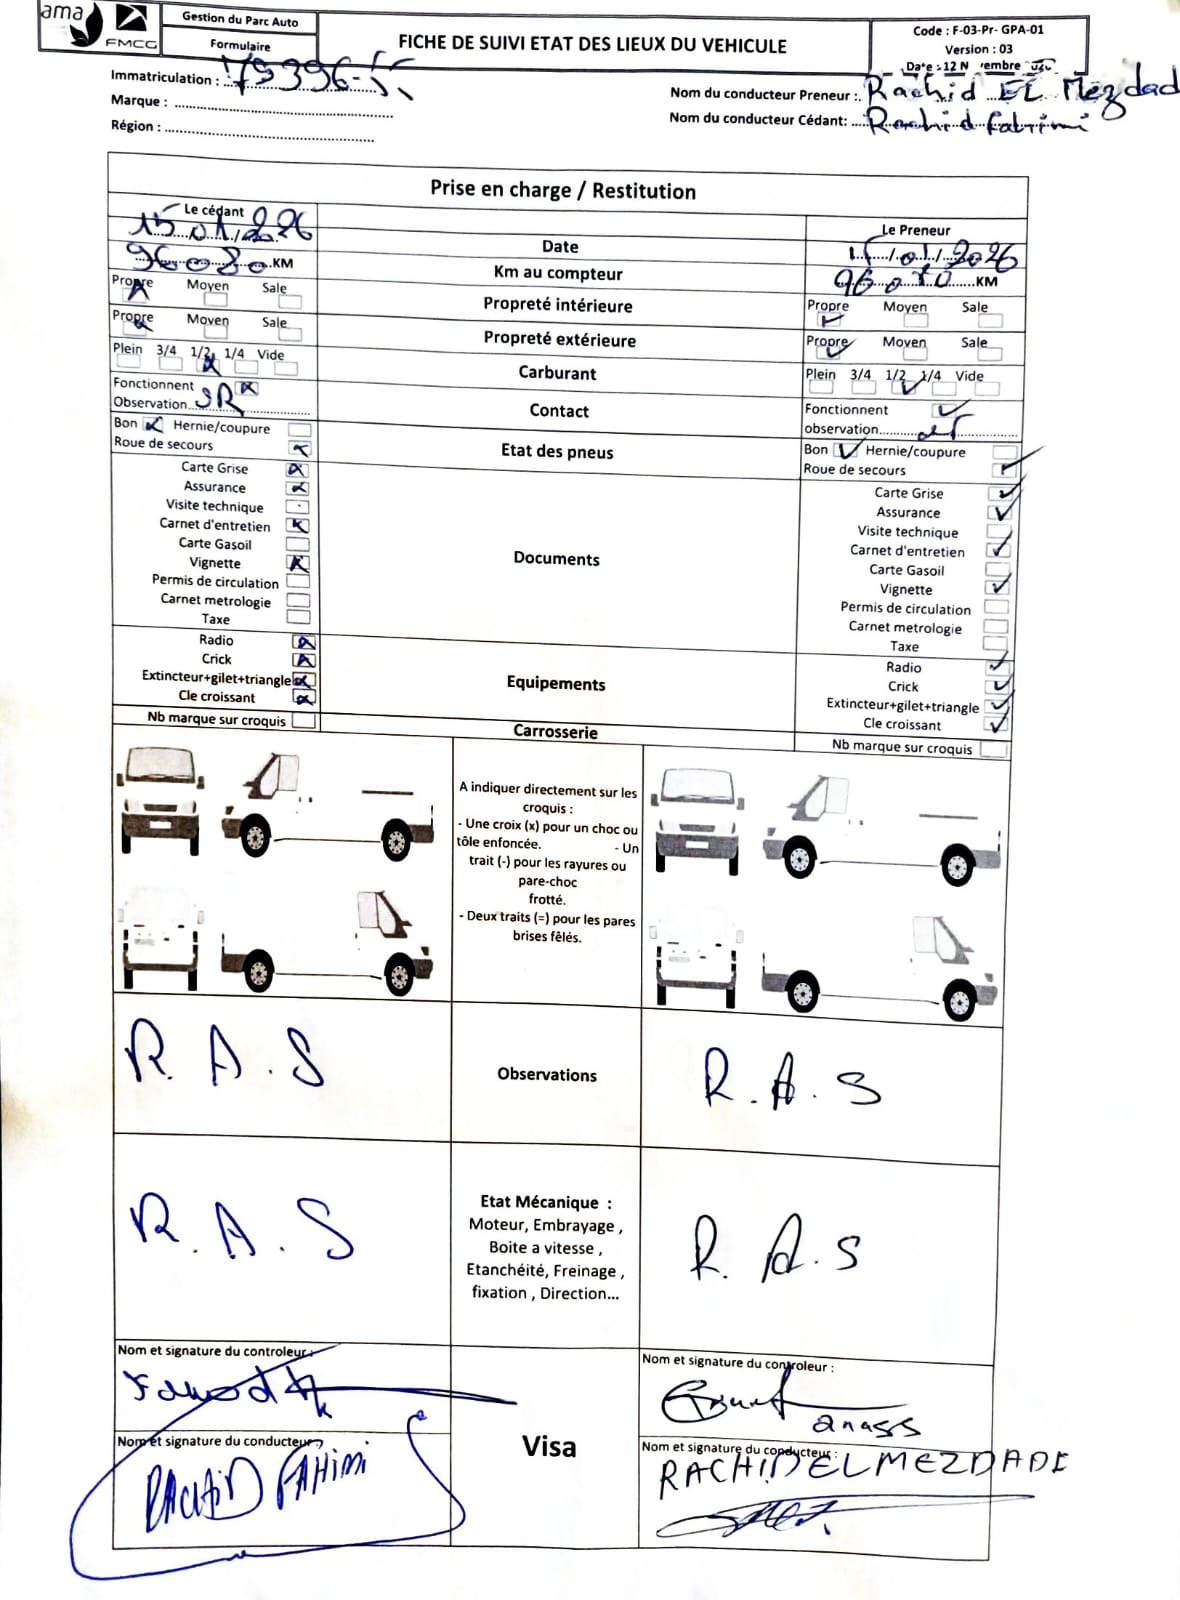 ama
FMCG
Gestion du Parc Auto
Formulaire
FICHE DE SUIVI ETAT DES LIEUX DU VEHICULE
Code : F-03-Pr- GPA-01
Version : 03
Date : 12 N embre
Immatriculation : 79396-55
Marque :
Région :
Nom du conducteur Preneur : Rachid EL Mezdad
Nom du conducteur Cédant: Rachid Fahimi
Prise en charge / Restitution
Le cédant
Le Preneur
15.01/2026
Date
15/01/2026
96080 KM
Km au compteur
96070 KM
Propre Moyen Sale
Propreté intérieure
Propre Moyen Sale
Propre Moyen Sale
Propreté extérieure
Propre Moyen Sale
Plein 3/4 1/2 1/4 Vide
Carburant
Plein 3/4 1/2 1/4 Vide
Fonctionnent
Observation
Contact
Fonctionnent
observation
Bon Hernie/coupure
Roue de secours
Etat des pneus
Bon Hernie/coupure
Roue de secours
Carte Grise
Assurance
Visite technique
Carnet d'entretien
Carte Gasoil
Vignette
Permis de circulation
Carnet metrologie
Taxe
Documents
Carte Grise
Assurance
Visite technique
Carnet d'entretien
Carte Gasoil
Vignette
Permis de circulation
Carnet metrologie
Taxe
Radio
Crick
Extincteur+gilet+triangle
Cle croissant
Equipements
Radio
Crick
Extincteur+gilet+triangle
Cle croissant
Nb marque sur croquis
Carrosserie
Nb marque sur croquis
A indiquer directement sur les
croquis :
- Une croix (x) pour un choc ou
tôle enfoncée. - Un
trait (-) pour les rayures ou
pare-choc
frotté.
- Deux traits (=) pour les pares
brises fêlés.
R.A.S
Observations
R.A.S
R.A.S
Etat Mécanique :
Moteur, Embrayage ,
Boite a vitesse ,
Etanchéité, Freinage ,
fixation , Direction...
R.A.S
Nom et signature du controleur :
Nom et signature du controleur :
anass
Nom et signature du conducteur :
RACHID FAHIMI
Visa
Nom et signature du conducteur :
RACHID ELMEZDADE